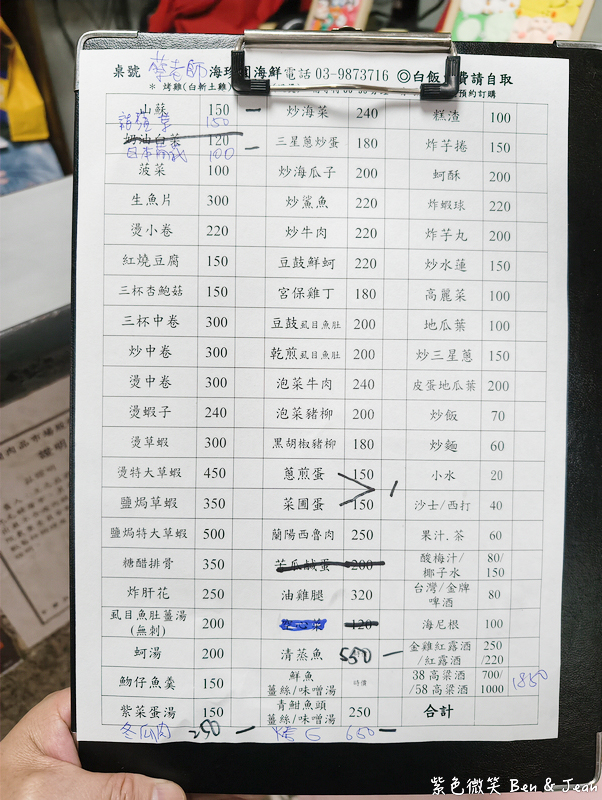 桌號 蔡老師 海珍園海鮮 電話 03-9873716 ◎白飯免費請自取
* 烤雞(白斬土雞) 預約訂購
山蘇 150 一 炒海菜 240 糕渣 100
150
奶油白菜 120 三星蔥炒蛋 180 炸芋捲 150
日本 100 一
菠菜 100 炒海瓜子 200 蚵酥 200
生魚片 300 炒鯊魚 220 炸蝦球 220
燙小卷 220 炒牛肉 220 炸芋丸 200
紅燒豆腐 150 豆鼓鮮蚵 220 炒水蓮 150
三杯杏鮑菇 150 宮保雞丁 180 高麗菜 100
三杯中卷 300 豆鼓虱目魚肚 200 地瓜葉 100
炒中卷 300 乾煎虱目魚肚 200 炒三星蔥 150
燙中卷 300 泡菜牛肉 240 皮蛋地瓜葉 200
燙蝦子 240 泡菜豬柳 200 炒飯 70
燙草蝦 300 黑胡椒豬柳 180 炒麵 60
燙特大草蝦 450 蔥煎蛋 150 小水 20
鹽焗草蝦 350 菜圃蛋 150 沙士/西打 40
鹽焗特大草蝦 500 蘭陽西魯肉 250 果汁.茶 60
糖醋排骨 350 苦瓜鹹蛋 200 酸梅汁/椰子水 80/150
炸肝花 250 油雞腿 320 台灣/金牌啤酒 80
虱目魚肚薑湯(無刺) 200 120 海尼根 100
蚵湯 200 清蒸魚 550 一 金雞紅露酒/紅露酒 250/220
魩仔魚羹 150 鮮魚薑絲/味噌湯 時價 38高梁酒/58高梁酒 700/1000 1850
紫菜蛋湯 150 青魽魚頭薑絲/味噌湯 250 合計
冬瓜肉 250 一 烤G 650 一
紫色微笑 Ben & Jean